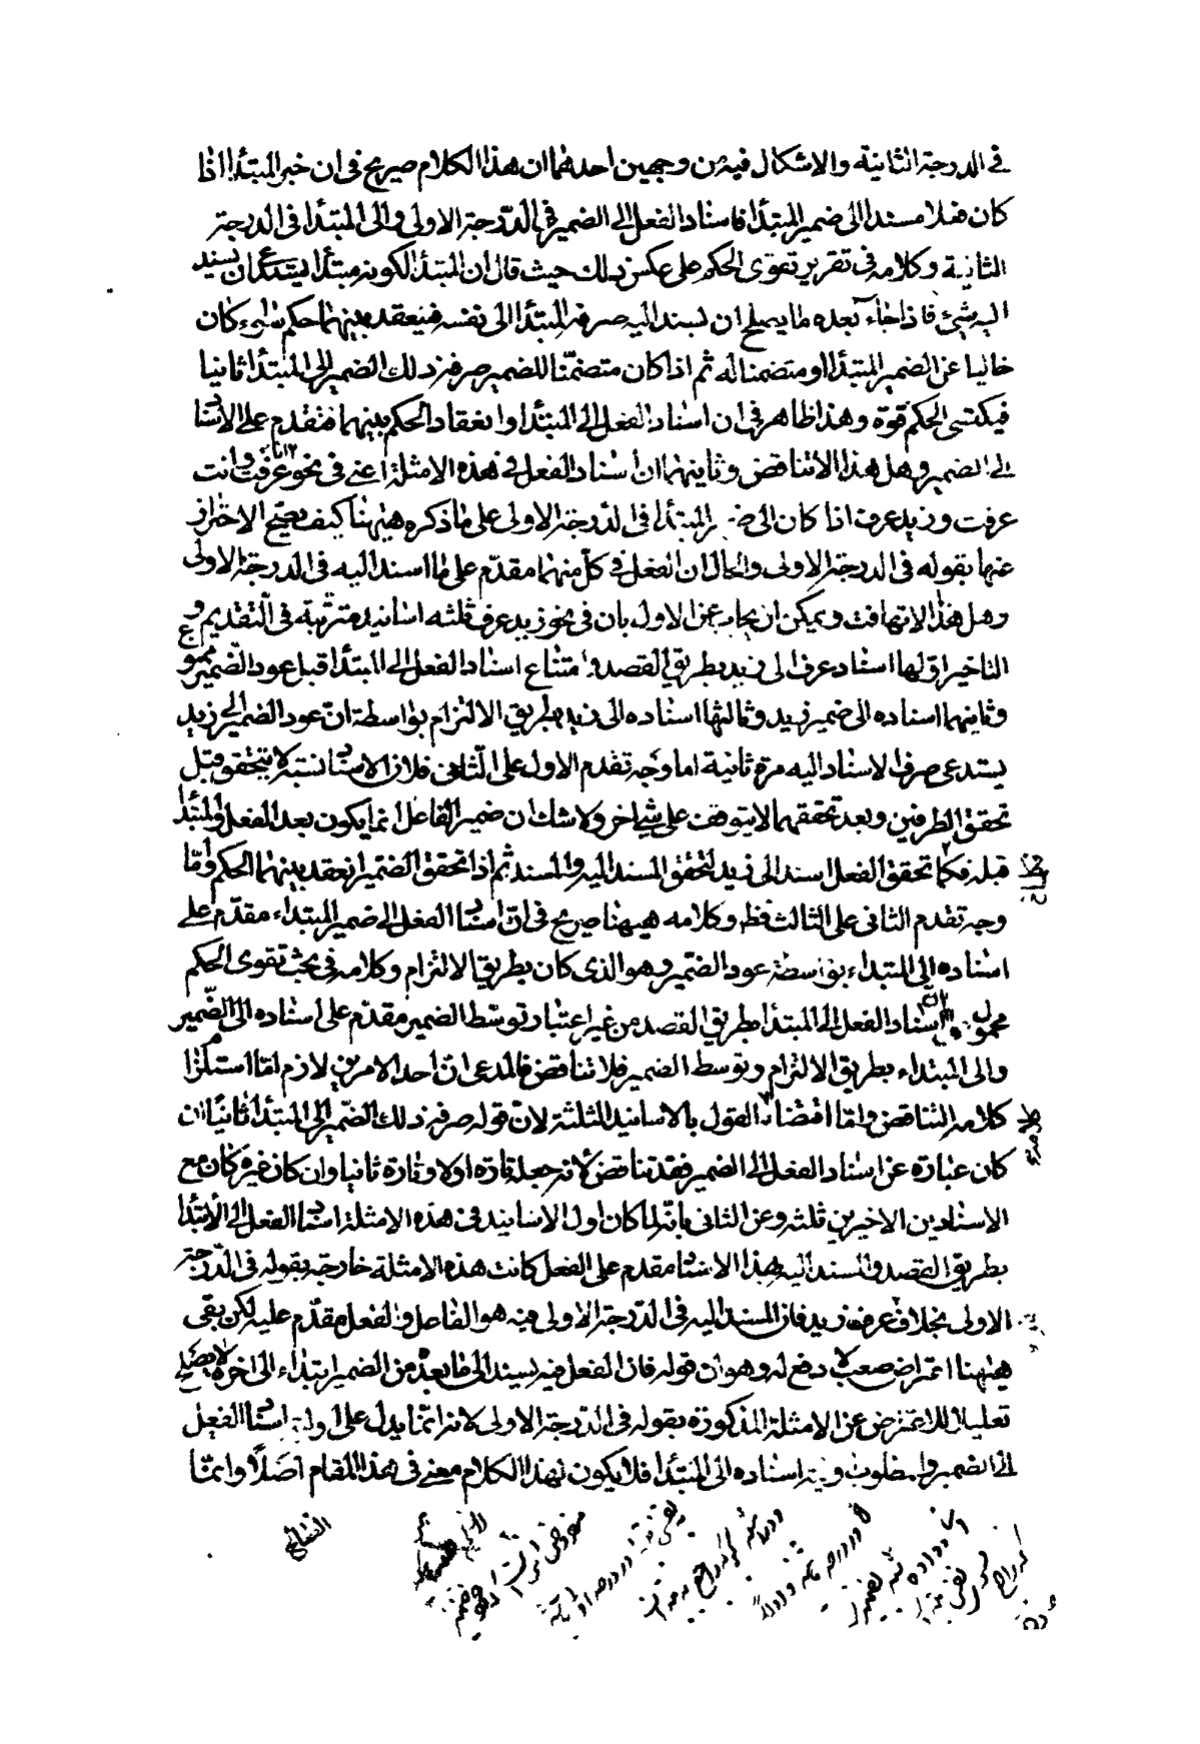 في الدرجة الثانية والاشكال فيه من وجهين احدهما ان هذا الكلام صريح في ان خبر المبتدأ اذا
كان فعلا مسندا الى ضمير المبتدأ فاسناد الفعل الى الضمير في الدرجة الاولى والى المبتدأ في الدرجة
الثانية وكلامه في تقرير تقوى الحكم على عكس ذلك حيث قال ان المبتدأ لكونه مبتدأ يستدعى ان يسند
اليه شئ فاذا جاء بعده ما يصلح ان يسند اليه صرفه المبتدأ الى نفسه فينعقد بينهما حكم سواء كان
خاليا عن الضمير المبتدأ او متضمنا له ثم اذا كان متضمنا للضمير صرفه ذلك الضمير الى المبتدأ ثانيا
فيكتسى الحكم قوة وهذا ظاهر في ان اسناد الفعل الى المبتدأ وانعقاد الحكم بينهما متقدم على الاسناد
الى الضمير وهل هذا الا تناقض وثانيهما ان اسناد الفعل في هذه الامثلة اعنى في نحو انا عرفت وانت
عرفت وزيد عرف اذا كان الى ضمير المبتدأ في الدرجة الاولى على ما ذكره ههنا كيف يصح الاحتراز
عنها بقوله في الدرجة الاولى والحال ان الفعل في كل منهما مقدم على ما اسند اليه في الدرجة الاولى
وهل هذا الا تهافت ويمكن ان يجاب عن الاول بان في نحو زيد عرف ثلثه اسانيد مترتبة في التقديم و
التاخير اولها اسناد عرف الى زيد بطريق القصد وامتناع اسناد الفعل الى المبتدأ قبل عود الضمير ممنوع
وثانيهما اسناده الى ضمير زيد وثالثها اسناده الى زيد بطريق الالتزام بواسطة ان عود الضمير الى زيد
يستدعى صرف الاسناد اليه مرة ثانية اما وجه تقدم الاول على الثانى فلان الاسناد نسبة لا تتحقق قبل
تحقق الطرفين وبعد تحققهما لا يتوقف على شئ اخر ولا شك ان ضمير الفاعل انما يكون بعد الفعل والمبتدأ
قبله فكما تحقق الفعل اسند الى زيد لتحقق المسند اليه والمسند ثم اذا تحقق الضمير انعقد بينهما الحكم واما
وجه تقدم الثانى على الثالث فظ وكلامه ههنا صريح في ان اسناد الفعل الى ضمير المبتداء مقدم على
اسناده الى المبتداء بواسطة عود الضمير وهو الذى كان بطريق الالتزام وكلامه في بحث تقوى الحكم
محمول على ان اسناد الفعل الى المبتدأ بطريق القصد من غير اعتبار توسط الضمير مقدم على اسناده الى الضمير
والى المبتداء بطريق الالتزام وتوسط الضمير فلا تناقض فالمدعى ان احد الامرين لازم اما استلزام
كلامه التناقض واما اقتضاء القول بالاسانيد الثلثة لان قوله صرفه ذلك الضمير الى المبتدأ ثانيا ان
كان عبارة عن اسناد الفعل الى الضمير فقد تناقض لانه جعله تارة اولا وتارة ثانيا وان كان غيره كان مع
الاسنادين الاخيرين ثلثه وعن الثانى بانه لما كان اول الاسانيد في هذه الامثلة اسناد الفعل الى المبتدأ
بطريق القصد والمسند اليه بهذا الاسناد مقدم على الفعل كانت هذه الامثلة خارجة بقوله في الدرجة
الاولى بخلاف عرف زيد فان المسند اليه في الدرجة الاولى فيه هو الفاعل والفعل مقدم عليه لكن بقى
ههنا اعتراض صعب لا دفع له وهو ان قوله فان الفعل فيه يسند الى ما بعده من الضمير ابتداء الى اخره لا يصلح
تعليلا للاعتراض عن الامثلة المذكورة بقوله في الدرجة الاولى لانه انما يدل على اولية اسناد الفعل
الى الضمير والمطلوب اولية اسناده الى المبتدأ فلا يكون لهذا الكلام معنى في هذا المقام اصلا وانما